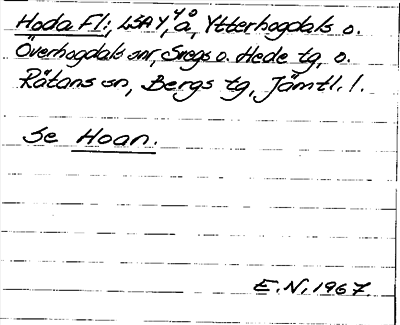 Hoda Fl; LSA Y, 40 å, Ytterhogdals o.
Överhogdals snr, Svegs o. Hede tg, o.
Rätans sn, Bergs tg, Jämtl. l.
Se Hoan.
E.N. 1967